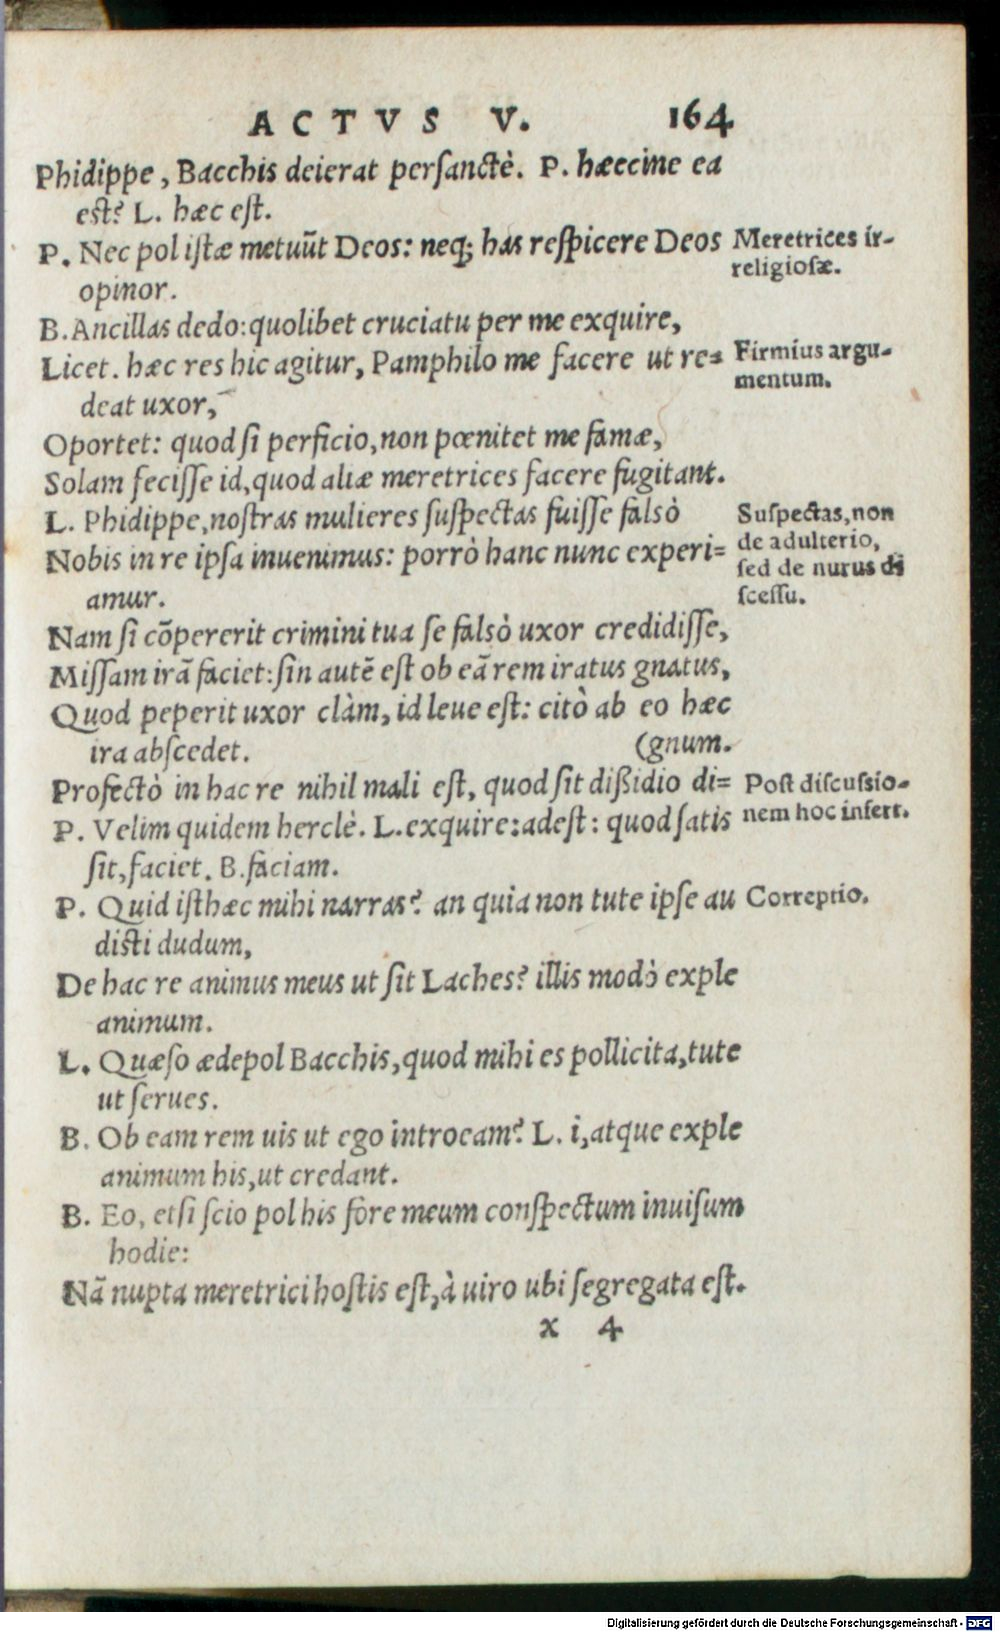 ACTVS V. 164
Phidippe, Bacchis deierat persanctè. P. hæccine ea
est? L. hæc est.
P. Nec pol istæ metuũt Deos: neq; has respicere Deos
opinor.
Meretrices ir-
religiosæ.
B. Ancillas dedo: quolibet cruciatu per me exquire,
Licet. hæc res hic agitur, Pamphilo me facere ut re=
deat uxor,
Firmius argu-
mentum.
Oportet: quod si perficio, non pœnitet me famæ,
Solam fecisse id, quod aliæ meretrices facere fugitant.
L. Phidippe, nostras mulieres suspectas fuisse falsò
Nobis in re ipsa inuenimus: porrò hanc nunc experi=
amur.
Suspectas, non
de adulterio,
sed de nurus di
scessu.
Nam si cõpererit crimini tua se falsò uxor credidisse,
Missam irã faciet: sin autẽ est ob eã rem iratus gnatus,
Quod peperit uxor clàm, id leue est: citò ab eo hæc
ira abscedet. (gnum.
Profectò in hac re nihil mali est, quod sit dißidio di=
P. Velim quidem herclè. L. exquire: adest: quod satis
sit, faciet. B. faciam.
Post discussio-
nem hoc infert.
P. Quid isthæc mihi narras? an quia non tute ipse au
disti dudum,
Correptio.
De hac re animus meus ut sit Laches? illis modò exple
animum.
L. Quæso ædepol Bacchis, quod mihi es pollicita, tute
ut serues.
B. Ob eam rem uis ut ego introeam? L. i, atque exple
animum his, ut credant.
B. Eo, etsi scio pol his fore meum conspectum inuisum
hodie:
Nã nupta meretrici hostis est, à uiro ubi segregata est.
x 4
Digitalisierung gefördert durch die Deutsche Forschungsgemeinschaft - DFG